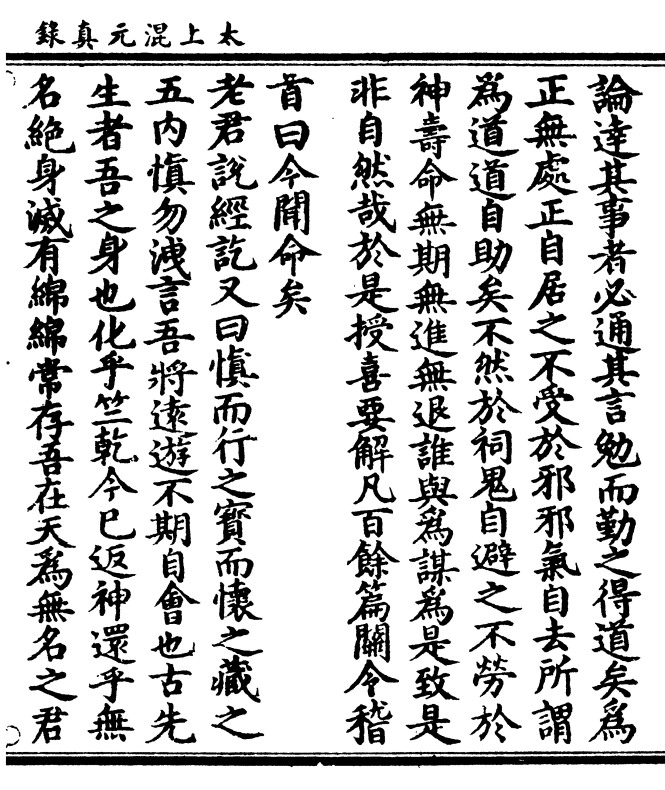 太上混元真錄
論達其事者必通其言勉而勤之得道矣為
正無處正自居之不受於邪邪氣自去所謂
為道道自助矣不然於祠鬼自避之不勞於
神壽命無期無進無退誰與為謀為是致是
非自然哉於是授喜要解凡百餘篇關令稽
首曰今聞命矣
老君說經訖又曰慎而行之寶而懷之藏之
五內慎勿洩言吾將遠遊不期自會也古先
生者吾之身也化乎竺乾今已返神還乎無
名絕身滅有綿綿常存吾在天為無名之君